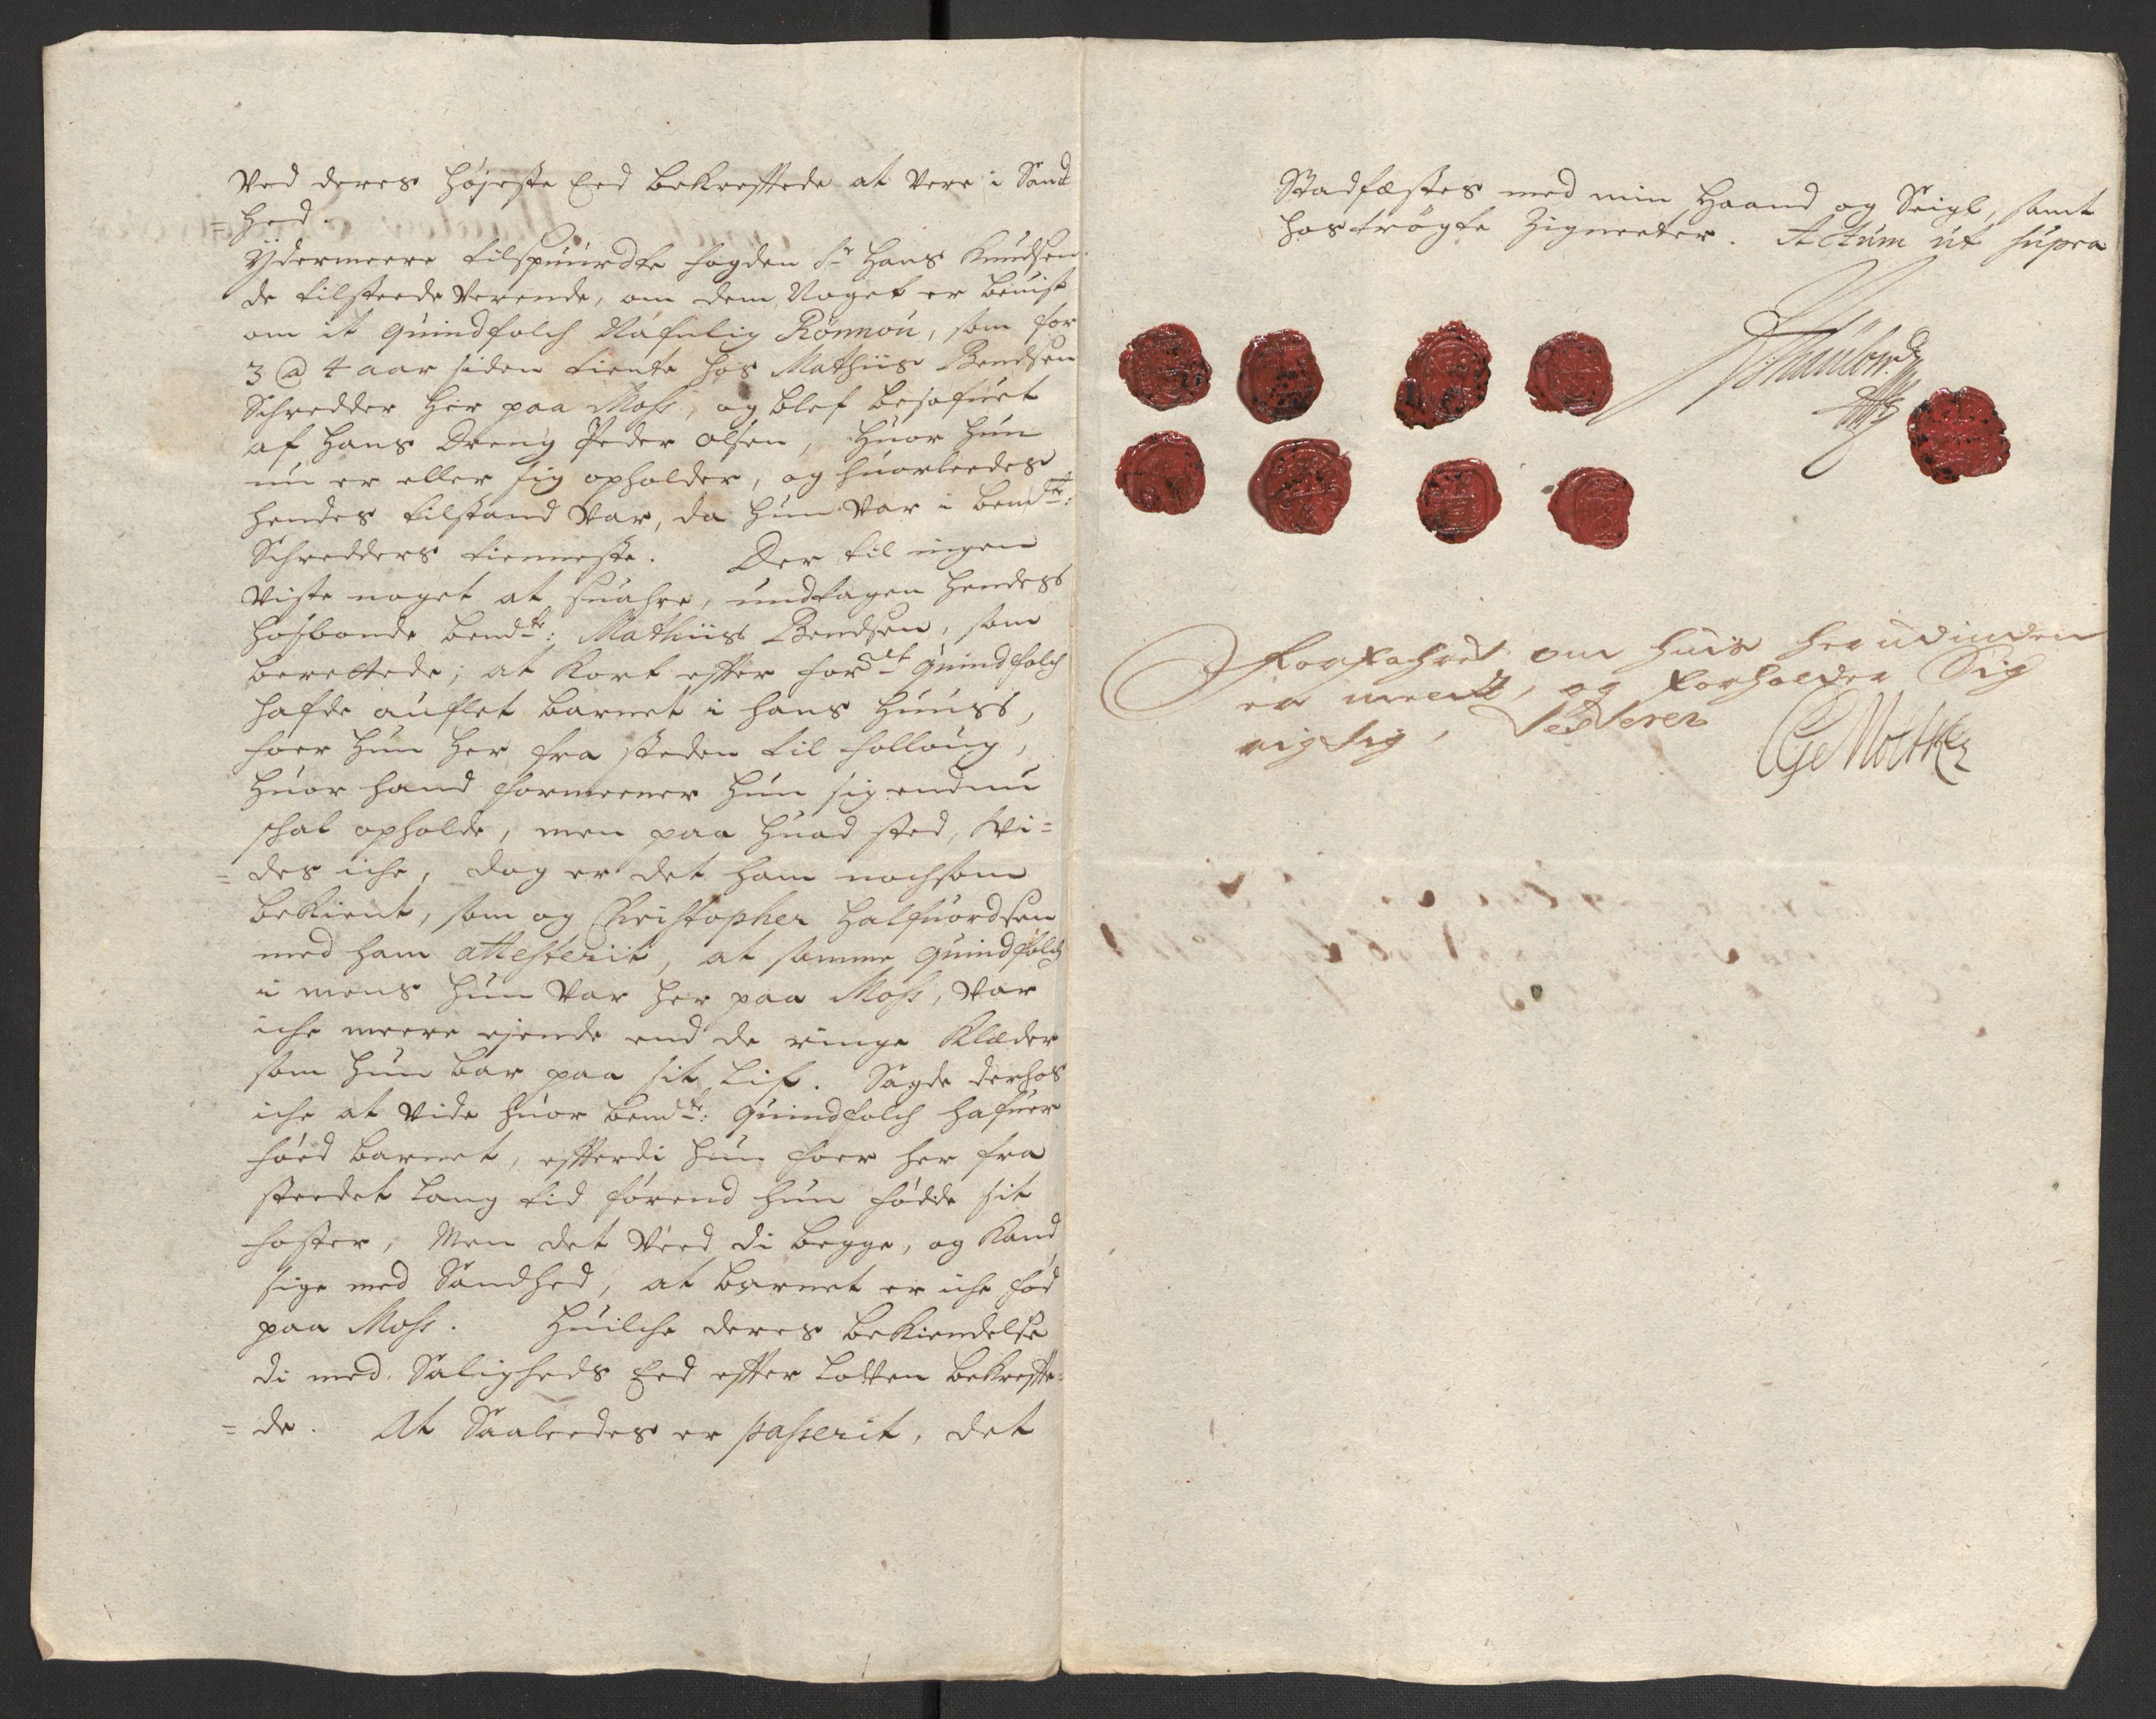 Ved deres höjeste Eed bekreftede at Vere i Sand
= hed.
Ydermeere tilspuurdte fogden Sr Hans Knudsen
de tilsteede Verende, om dem Noget er bevist
om it quindfolch Nafnlig Rönnou, som for
3 @ 4 aar siden tiente hos Mathiis Bendsen
Schredder her paa Moss, og blef besofuet
af hans Dreng Peder Olsen, huor hun
nu er eller sig opholder, og huorleedes
hendes tilstand Var, da hun Var i bemdte:
Schredders tienneste. Der til ingen
Viste noget at suahre, undtagen hendes
hosbonde bemdte: Mathiis Bendsen, som
berettede, at kort efter fordte quindfolch
hafde auflet barnet i hans Huuss,
foer hun her fra steden til Folloug,
huor hand formeener hun sig endnu
schal opholde, men paa huad sted, Vi=
= des iche, dog er det ham nochsom
bekient, som og Christopher Halfuordsen
med ham attesterit, at samme quindfolch
i mens hun Var her paa Moss, Var
iche meere ejende end de ringe Klæder
som hun bar paa sit Lif. Sagde derhos
iche at Vide huor bemdte: quindfolch hafuer
föed barnet, efterdi hun foer her fra
steedet lang tid förend hun födde sit
foster, Men det Veed di begge, og kand
sige med Sandhed, at barnet er iche föd
paa Moss. Huilche deres bekiendelse
di med Saligheds Eed efter Loven bekrefte=
= de. At Saaleedes er passerit, det
Stadfæstes med min Haand og Seigl, samt
hoströgte Zigneter. Actum ut supra
Forfahret om huis herudinden
er meent, og forholder Sig
rigtig, Testerer
CGeMoltke